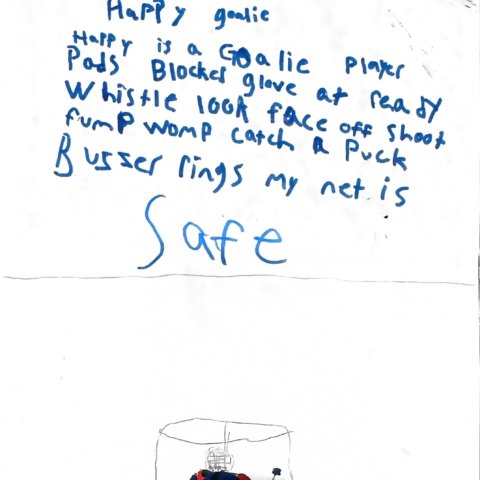 Happy goalie
Happy is a Goalie player
Pads Blocker glove at ready
Whistle look face off shoot
fump womp catch a puck
Buszer rings my net is
Safe